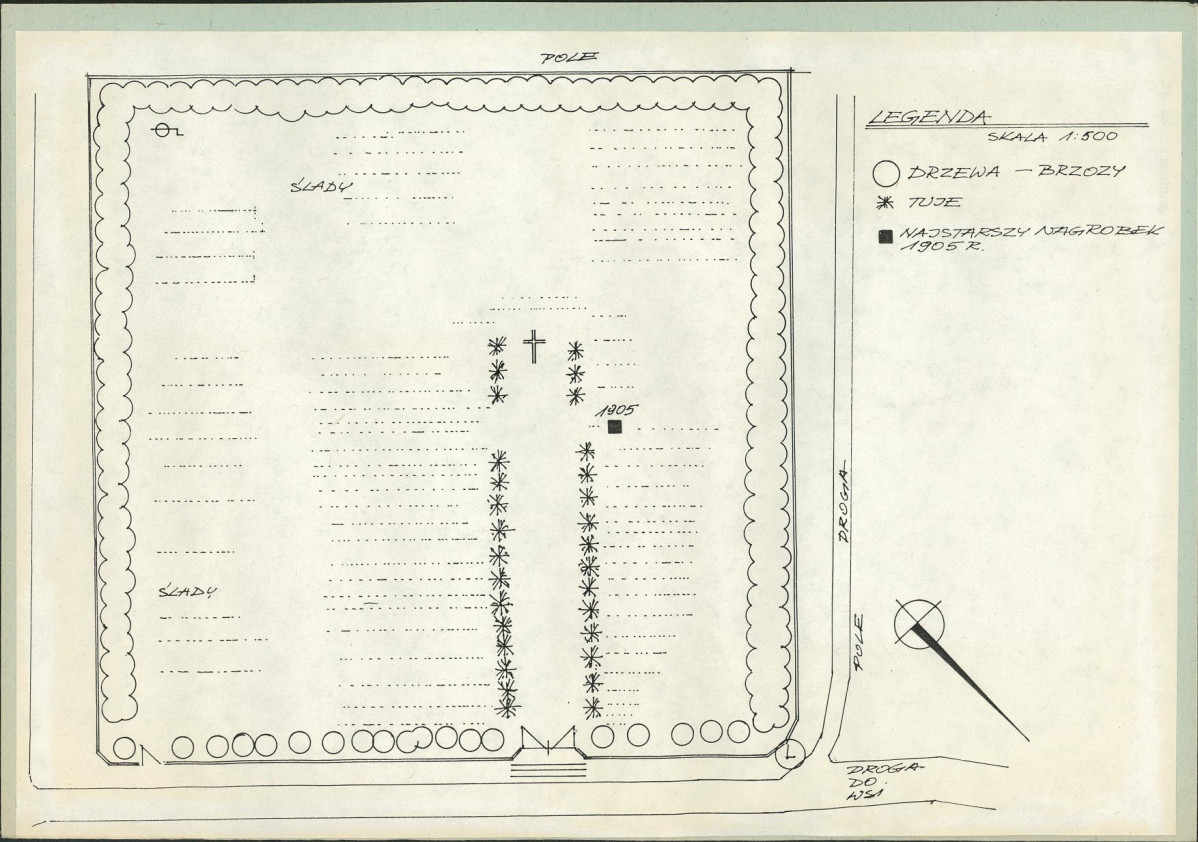 POLE
LEGENDA
SKALA 1:500
DRZEWA – BRZOZY
TUJE
NAJSTARSZY NAGROBEK
1905 R.
ŚLADY
1905
DROGA
ŚLADY
POLE
L
DROGA
DO
WSI